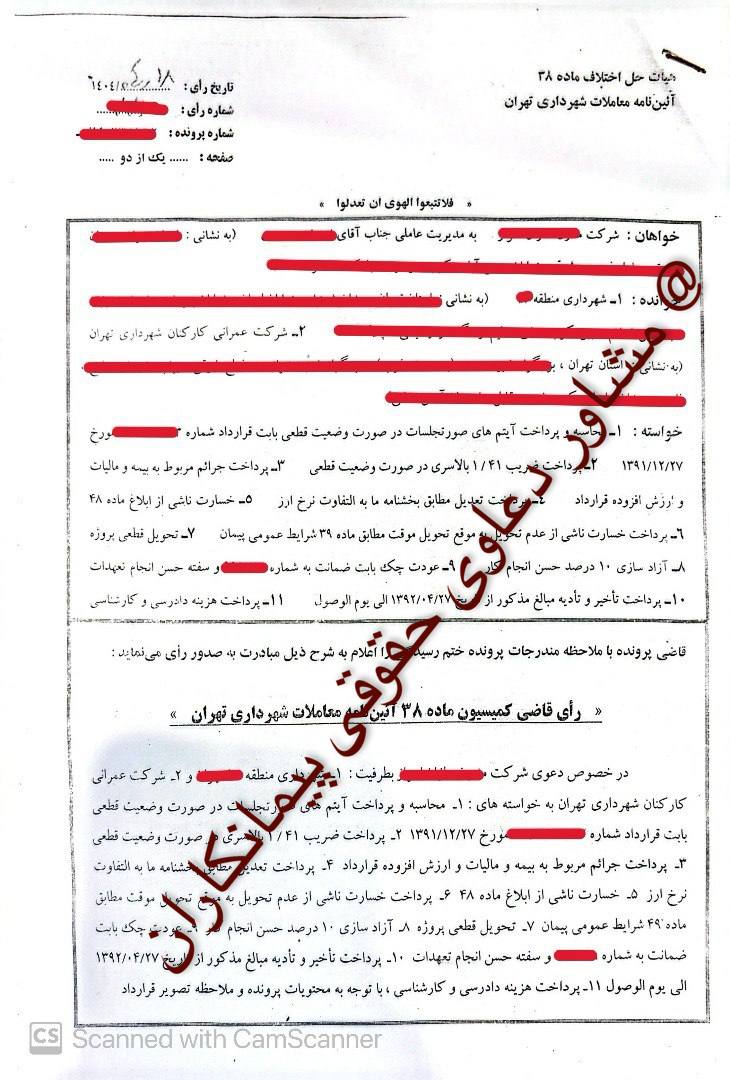 هیأت حل اختلاف ماده ۳۸
آئین‌نامه معاملات شهرداری تهران
تاریخ رأی : ۱۴۰۴/
شماره رأی :
شماره پرونده :
صفحه : ...... یک از دو .....
« فلاتتبعوا الهوی ان تعدلوا »
خواهان : شرکت به مدیریت عاملی جناب آقای (به نشانی :
خوانده : ۱ـ شهرداری منطقه (به نشانی
۲ـ شرکت عمرانی کارکنان شهرداری تهران
(به نشانی : استان تهران ،
خواسته : ۱ـ محاسبه و پرداخت آیتم های صورتجلسات در صورت وضعیت قطعی بابت قرارداد شماره مورخ
۱۳۹۱/۱۲/۲۷ ۲ـ پرداخت ضریب ۱/۴۱ بالاسری در صورت وضعیت قطعی ۳ـ پرداخت جرائم مربوط به بیمه و مالیات
و ارزش افزوده قرارداد ۴ـ پرداخت تعدیل مطابق بخشنامه ما به التفاوت نرخ ارز ۵ـ خسارت ناشی از ابلاغ ماده ۴۸
۶ـ پرداخت خسارت ناشی از عدم تحویل به موقع تحویل موقت مطابق ماده ۳۹ شرایط عمومی پیمان ۷ـ تحویل قطعی پروژه
۸ـ آزاد سازی ۱۰ درصد حسن انجام کار ۹ـ عودت چک بابت ضمانت به شماره و سفته حسن انجام تعهدات
۱۰ـ پرداخت تأخیر و تأدیه مبالغ مذکور از تاریخ ۱۳۹۲/۰۴/۲۷ الی یوم الوصول ۱۱ـ پرداخت هزینه دادرسی و کارشناسی
قاضی پرونده با ملاحظه مندرجات پرونده ختم رسیدگی را اعلام به شرح ذیل مبادرت به صدور رأی می‌نماید :
« رأی قاضی کمیسیون ماده ۳۸ آئین‌نامه معاملات شهرداری تهران »
در خصوص دعوی شرکت بطرفیت : ۱ـ شهرداری منطقه و ۲ـ شرکت عمرانی
کارکنان شهرداری تهران به خواسته های : ۱ـ محاسبه و پرداخت آیتم های صورتجلسات در صورت وضعیت قطعی
بابت قرارداد شماره مورخ ۱۳۹۱/۱۲/۲۷ ۲ـ پرداخت ضریب ۱/۴۱ بالاسری در صورت وضعیت قطعی
۳ـ پرداخت جرائم مربوط به بیمه و مالیات و ارزش افزوده قرارداد ۴ـ پرداخت تعدیل مطابق بخشنامه ما به التفاوت
نرخ ارز ۵ـ خسارت ناشی از ابلاغ ماده ۴۸ ۶ـ پرداخت خسارت ناشی از عدم تحویل به موقع تحویل موقت مطابق
ماده ۴۹ شرایط عمومی پیمان ۷ـ تحویل قطعی پروژه ۸ـ آزاد سازی ۱۰ درصد حسن انجام کار ۹ـ عودت چک بابت
ضمانت به شماره و سفته حسن انجام تعهدات ۱۰ـ پرداخت تأخیر و تأدیه مبالغ مذکور از تاریخ ۱۳۹۲/۰۴/۲۷
الی یوم الوصول ۱۱ـ پرداخت هزینه دادرسی و کارشناسی ، با توجه به محتویات پرونده و ملاحظه تصویر قرارداد
@ مشاور دعاوی حقوقی پیمانکاران
CS Scanned with CamScanner